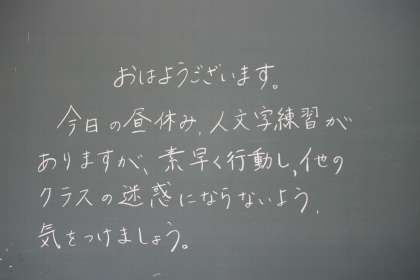 おはようございます。
今日の昼休み、人文字練習が
ありますが、素早く行動し、他の
クラスの迷惑にならないよう、
気をつけましょう。